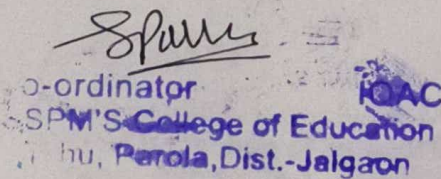 o-ordinator IQAC
SPM'S College of Education
hu, Parola, Dist.-Jalgaon